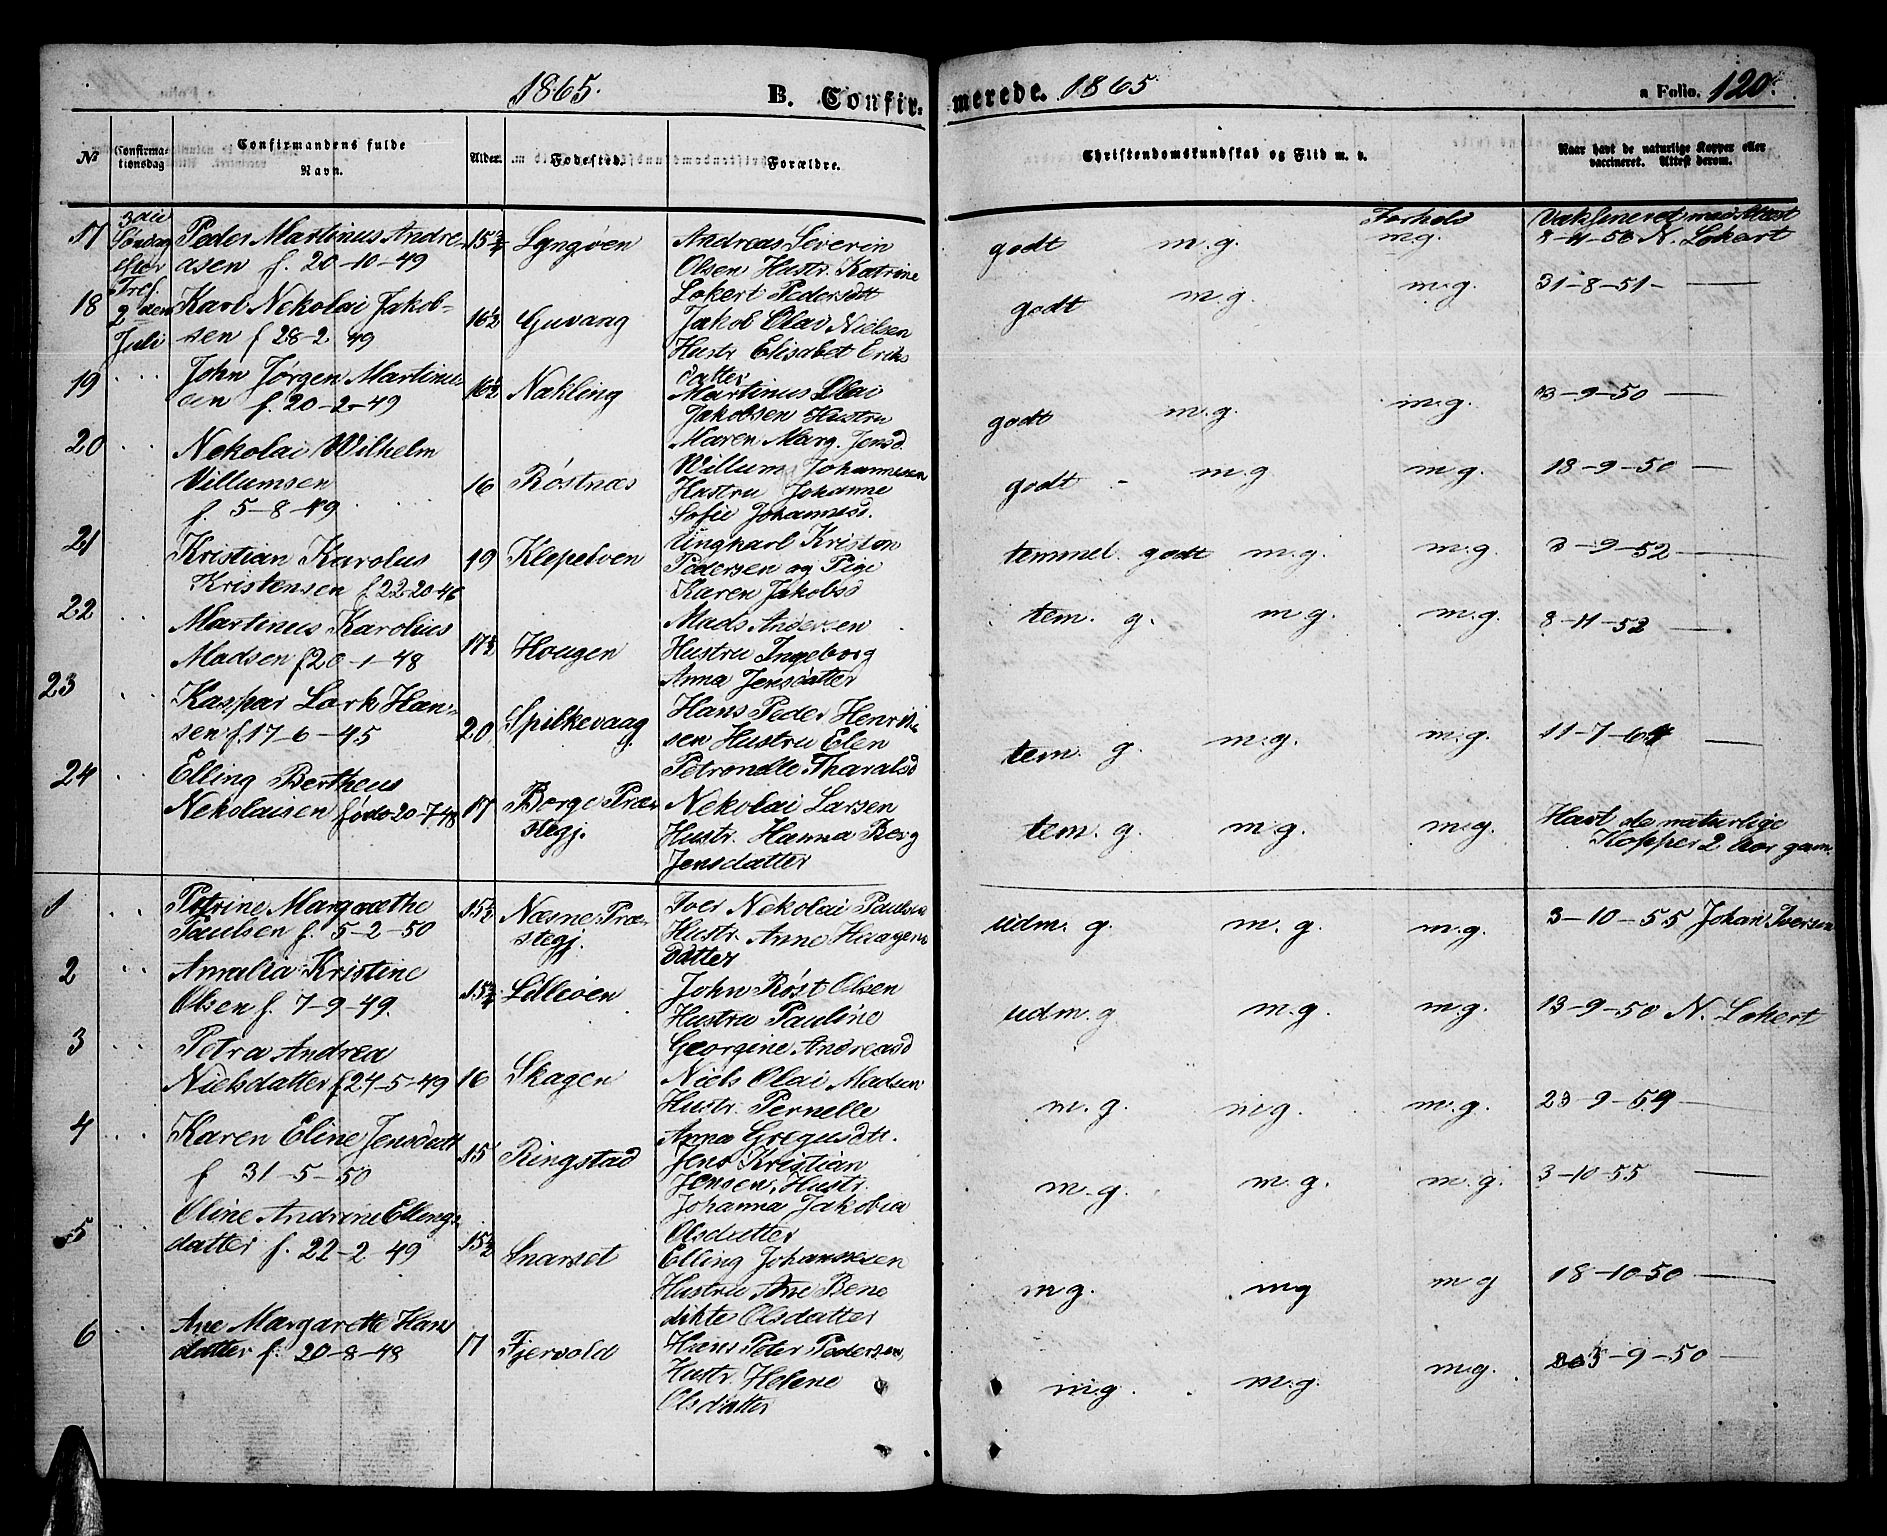 1865. B. Confir-
merede. 1865 a Folio. 120.
№ Confirmationsdag Confirmandens fulde Navn. Alder. Fødested. Forældre.
Christendomskundskab og Flid m. v. Naar havt de naturlige Kopper eller vaccineret. Attest derom.
3die Søndag efter Tref. 2den Juli
17 Peder Martinus Andre- 15 3/4 Lyngøen Andreas Severin
asen f. 20-10-49 Olsen Hustr. Katrine
Lokert Pedersdtt
Forhold Vaksineret med Attest
godt m.g. m.g. 8-11-50 N. Lokert
18 Karl Nekolai Jakob- 16 1/2 Guvaag Jakob Olai Nielsen
sen f 28-2 49 Hustr Elisabet Eriks
datter
godt m.g. m.g. 31-8-51-
19 John Jørgen Martinus 16 1/2 Nækling Martinus Olai
sen f. 20-2-49 Jakobsen Hustru
Maren Marg. Jensd.
godt m.g. m.g. 3-9-50
20 Nekolai Wilhelm
Villumsen 16 Røstnæs Willum Johannesen
f. 5-8-49 Hustru Johanne
Sofie Johannesd.
godt - m.g m.g. 13-9-50
21 Kristian Karolus 19 Klepelven Ungkarl Kristen
Kristensen f 22-20-46 Pedersen og Pige
Karen Jakobsd
temmel. godt m.g. m.g. 3-9-52
22 Martinus Karolius Mads Andersen
Madsen f 20-1-48 17 1/2 Hougen Hustru Ingeborg
Anna Jensdatter
tem. g. m.g. m.g. 8-11-52
23 Kaspar Lork Han- Hans Peder Henrik
sen f. 17-6-45 20 Spilkevaag sen Hustru Elen
Petronelle Tharalsd
tem. g. m.g. m.g. 11-7-64
24 Elling Bertheus
Nekolaisen fødd 20-7-48 17 Borge Præ- Nekolai Larsen
stegj. Hustr. Hanna Berg
Jensdatter
tem. g. m.g. m.g. Havt de naturlige
Kopper 2 Aar gam.
1 Petrine Margrethe 15 1/2 Næsne Præ- Iver Nekolai Paulsen
Paulsen f. 5-2-50 stegj. Hustr. Anne Haagens
datter
udm. g. m. g. m.g. 3-10-55 Johan Iversen
2 Amalia Kristine
Olsen f. 7-9-49. 15 3/4 Lilleøen John Røst Olsen
Hustru Pauline
Georgine Andreasd
udm. g m.g. m.g. 13-9-50 N. Lokert
3 Petra Andrea
Nielsdatter f 24-5-49 16 Skagen Niels Olai Madsen
Hustr. Pernelle
Anna Gregusdtt.
m.g. m.g. m.g. 23-9-59
4 Karen Eline Jensdatt 15 Ringstad Jens Kristian
f 31-5-50 Jensen, Hustr.
Johanna Jakobia
Olsdatter
m.g. m.g. m.g. 3-10-55
5 Oline Andrine Ellings-
datter f. 22-2 49 15 1/2 Snarset Elling Johannesen
Hustru Ane Bene
dikte Olsdatter
m.g. m.g m g 18-10-50
6 Ane Margarette Hans
datter f. 20-8-48 17 Fjervold Hans Peter Pedersen,
Hustr. Helene
Olsdatter
m.g. m.g. m.g. -9-50